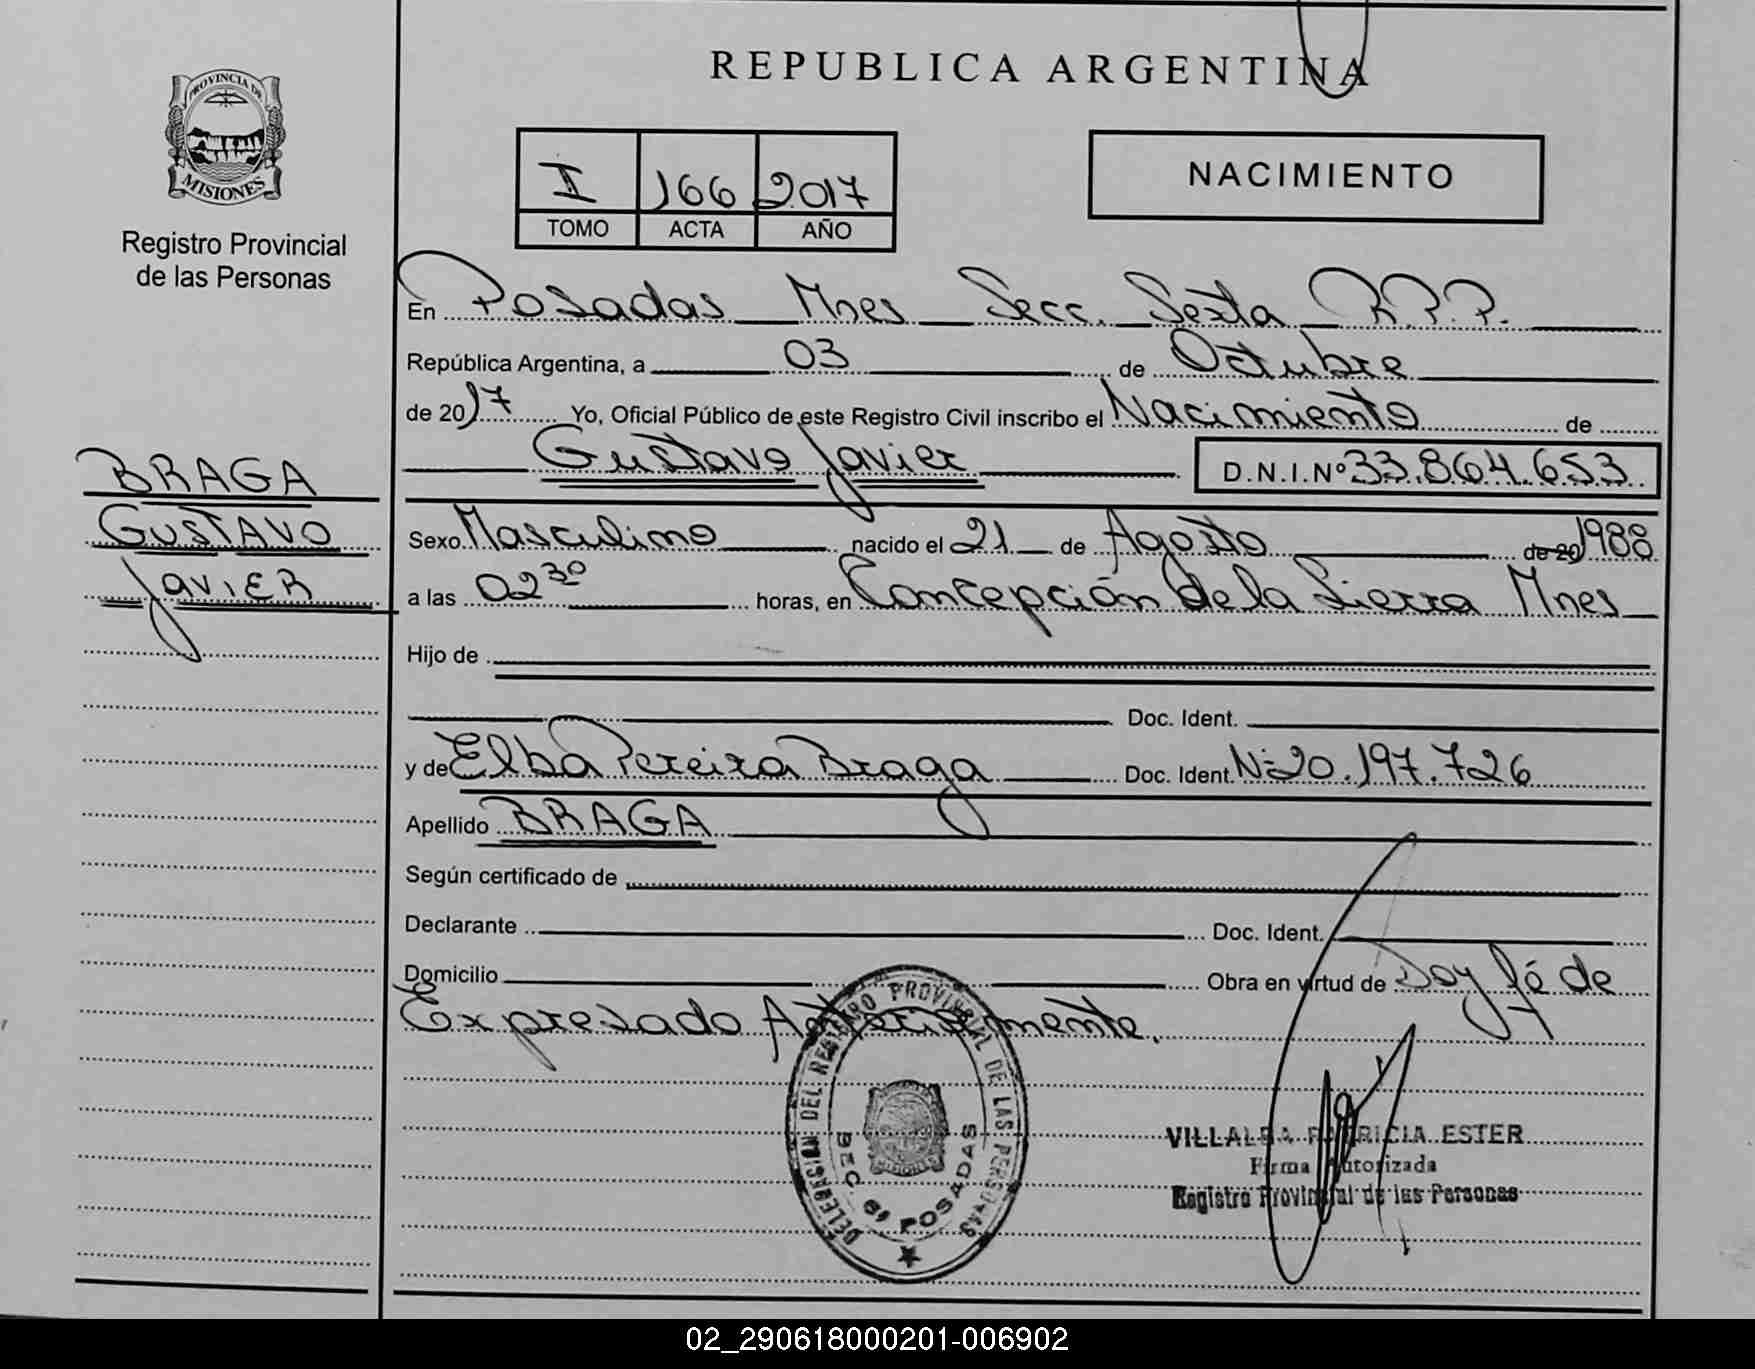 REPUBLICA ARGENTINA
PROVINCIA DE
MISIONES
Registro Provincial
de las Personas
I 166 2017
TOMO ACTA AÑO
NACIMIENTO
En Posadas Mnes Secc. Sexta R.P.P.
República Argentina, a 03 de Octubre
de 2017 Yo, Oficial Público de este Registro Civil inscribo el Nacimiento de
Gustavo Javier D.N.I.Nº 33.864.653
BRAGA
GUSTAVO
JAVIER
Sexo Masculino nacido el 21 de Agosto de 20 1988
a las 02 30 horas, en Concepción de la Sierra Mnes
Hijo de
Doc. Ident.
y de Elba Pereira Braga Doc. Ident. Nº 20.197.726
Apellido BRAGA
Según certificado de
Declarante Doc. Ident.
Domicilio Obra en virtud de Doy fé de
Expresado Anteriormente.
DELEGACION DEL REGISTRO PROVINCIAL DE LAS PERSONAS
MISIONES
SEC 6ª POSADAS
VILLALBA PATRICIA ESTER
Firma Autorizada
Registro Provincial de las Personas
02_290618000201-006902